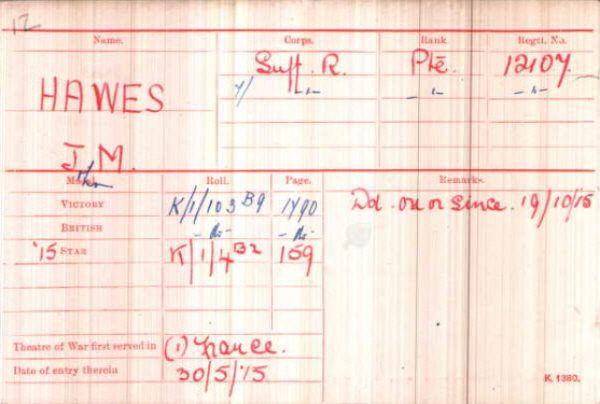 12
Name. Corps. Rank Regtl. No.
HAWES Suff. R. Pte. 12107
7/ -"- -"- -"-
J. M.
Medal. Roll. Page. Remarks.
VICTORY K/1/103 B9 1490 Dd. on or since 19/10/15
BRITISH -do- -do-
'15 STAR K/1/4 B2 159
Theatre of War first served in (1) France.
Date of entry therein 30/5/15
K. 1380.